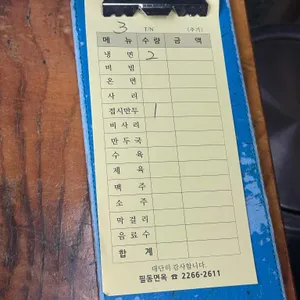 3 T/N (추가)
메 뉴 수 량 금 액
냉 면 2
비 빔
온 면
사 리
접시만두 1
비사리
만 두 국
수 육
제 육
맥 주
소 주
막 걸 리
음 료 수
합 계
대단히 감사합니다.
필동면옥 ☎ 2266-2611